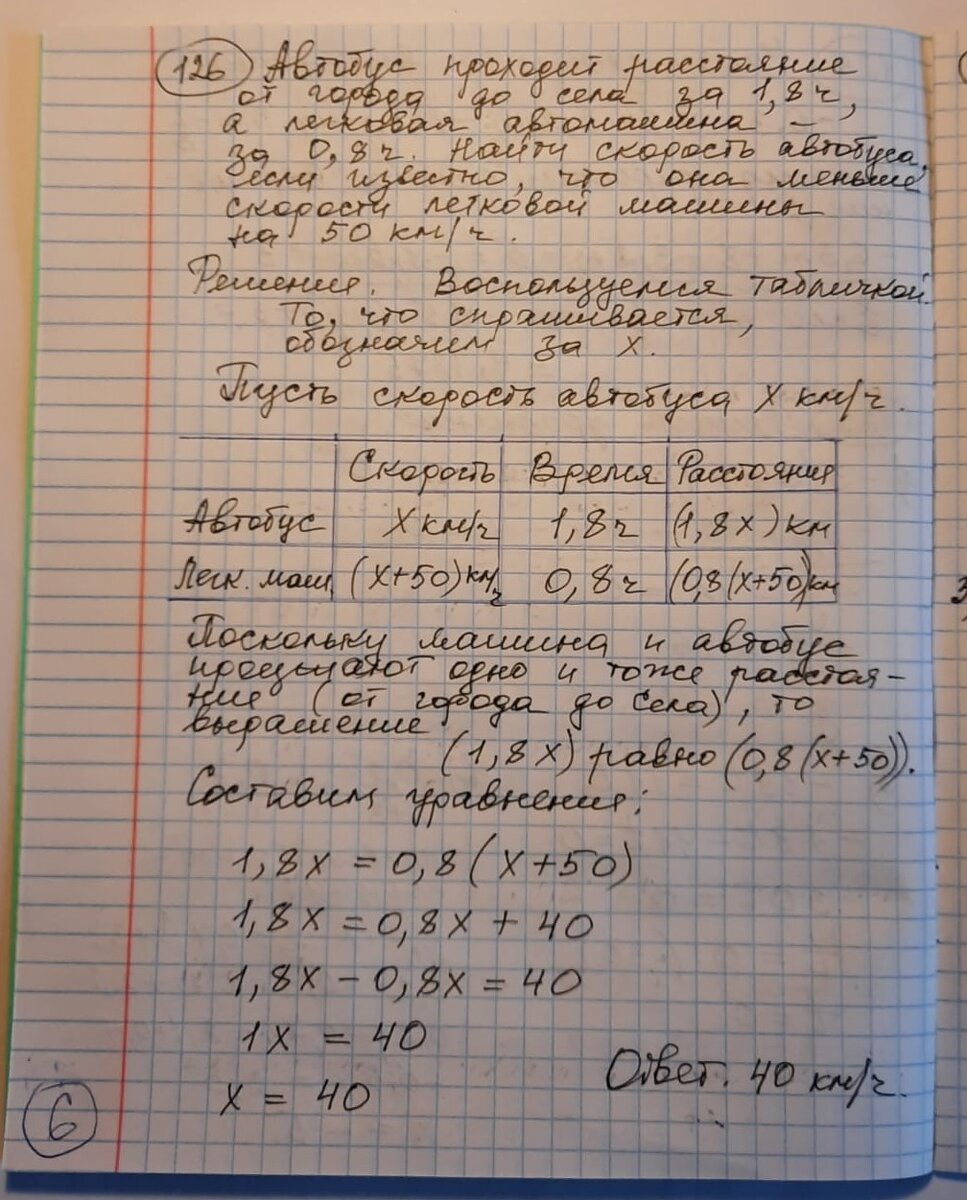 126 Автобус проходит расстояние
от города до села за 1,8 ч,
а легковая автомашина –
за 0,8 ч. Найти скорость автобуса,
если известно, что она меньше
скорости легковой машины
на 50 км/ч.
Решение. Воспользуемся табличкой.
То, что спрашивается,
обозначим за х.
Пусть скорость автобуса х км/ч.
Скорость Время Расстояние
Автобус х км/ч 1,8 ч (1,8х) км
Легк. маш. (х+50) км/ч 0,8 ч (0,8(х+50) км
Поскольку машина и автобус
проезжают одно и тоже расстоя-
ние (от города до села), то
выражение
(1,8х) равно (0,8(х+50)).
Составим уравнение:
1,8х = 0,8(х+50)
1,8х = 0,8х + 40
1,8х - 0,8х = 40
1х = 40
х = 40
Ответ. 40 км/ч.
6
3,